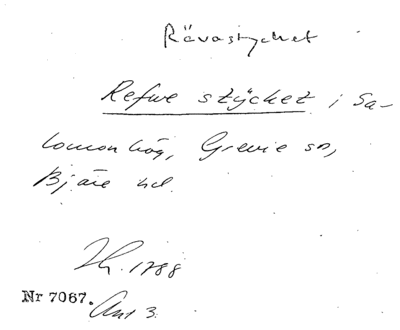 Rävastycket
Refwe stÿcket i Sa-
lomonhög, Grevie sn,
Bjäre hd.
1788
Nr 7067.